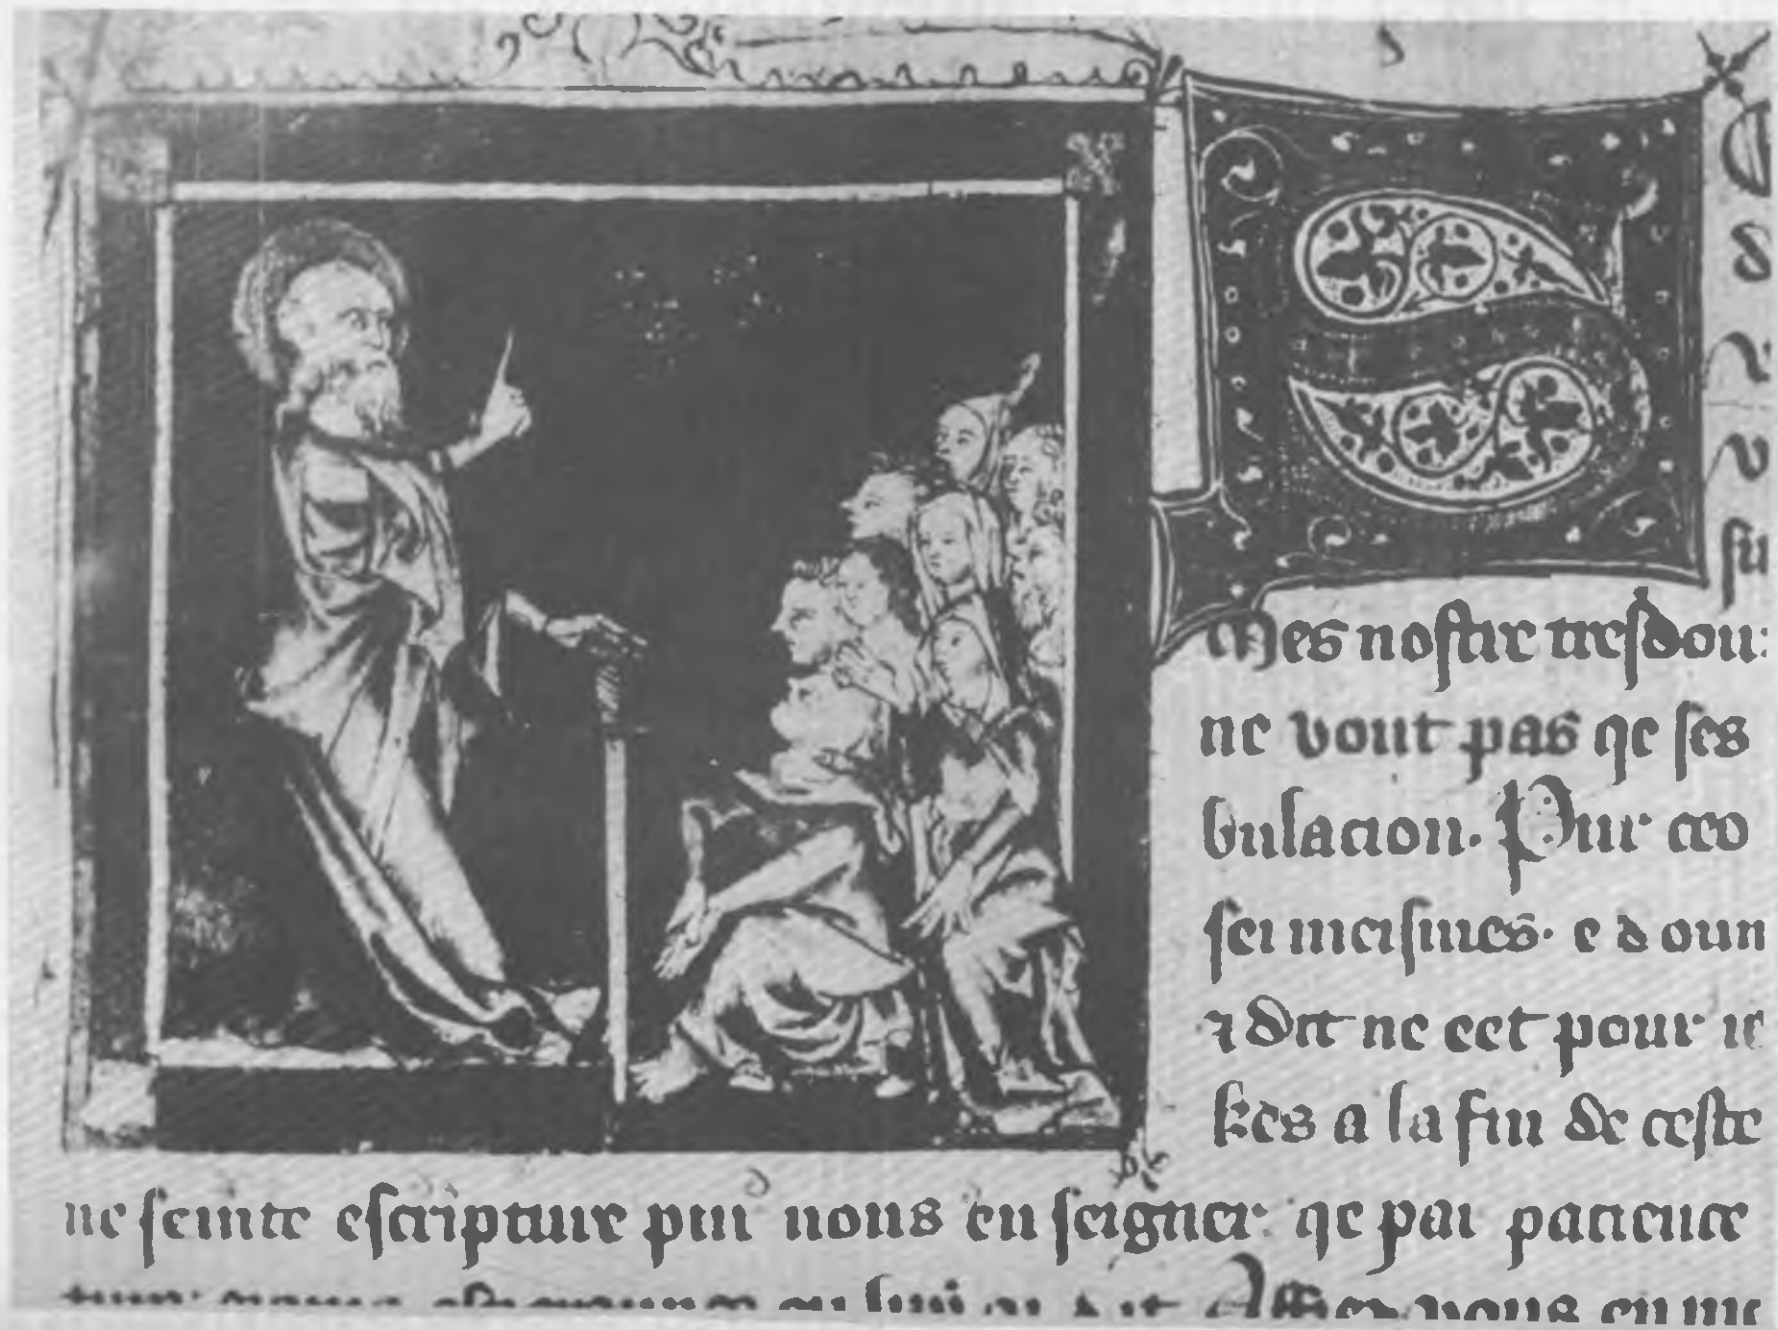 S
mes nostre tresdou:
ne vout pas qe ses
bulacion. Pur ceo
sei meismes. e doun
⁊ dit ne cet pour
kes a la fin de ceste
ne seinte escripture pur nous enseigner: qe par pacience
nous en me